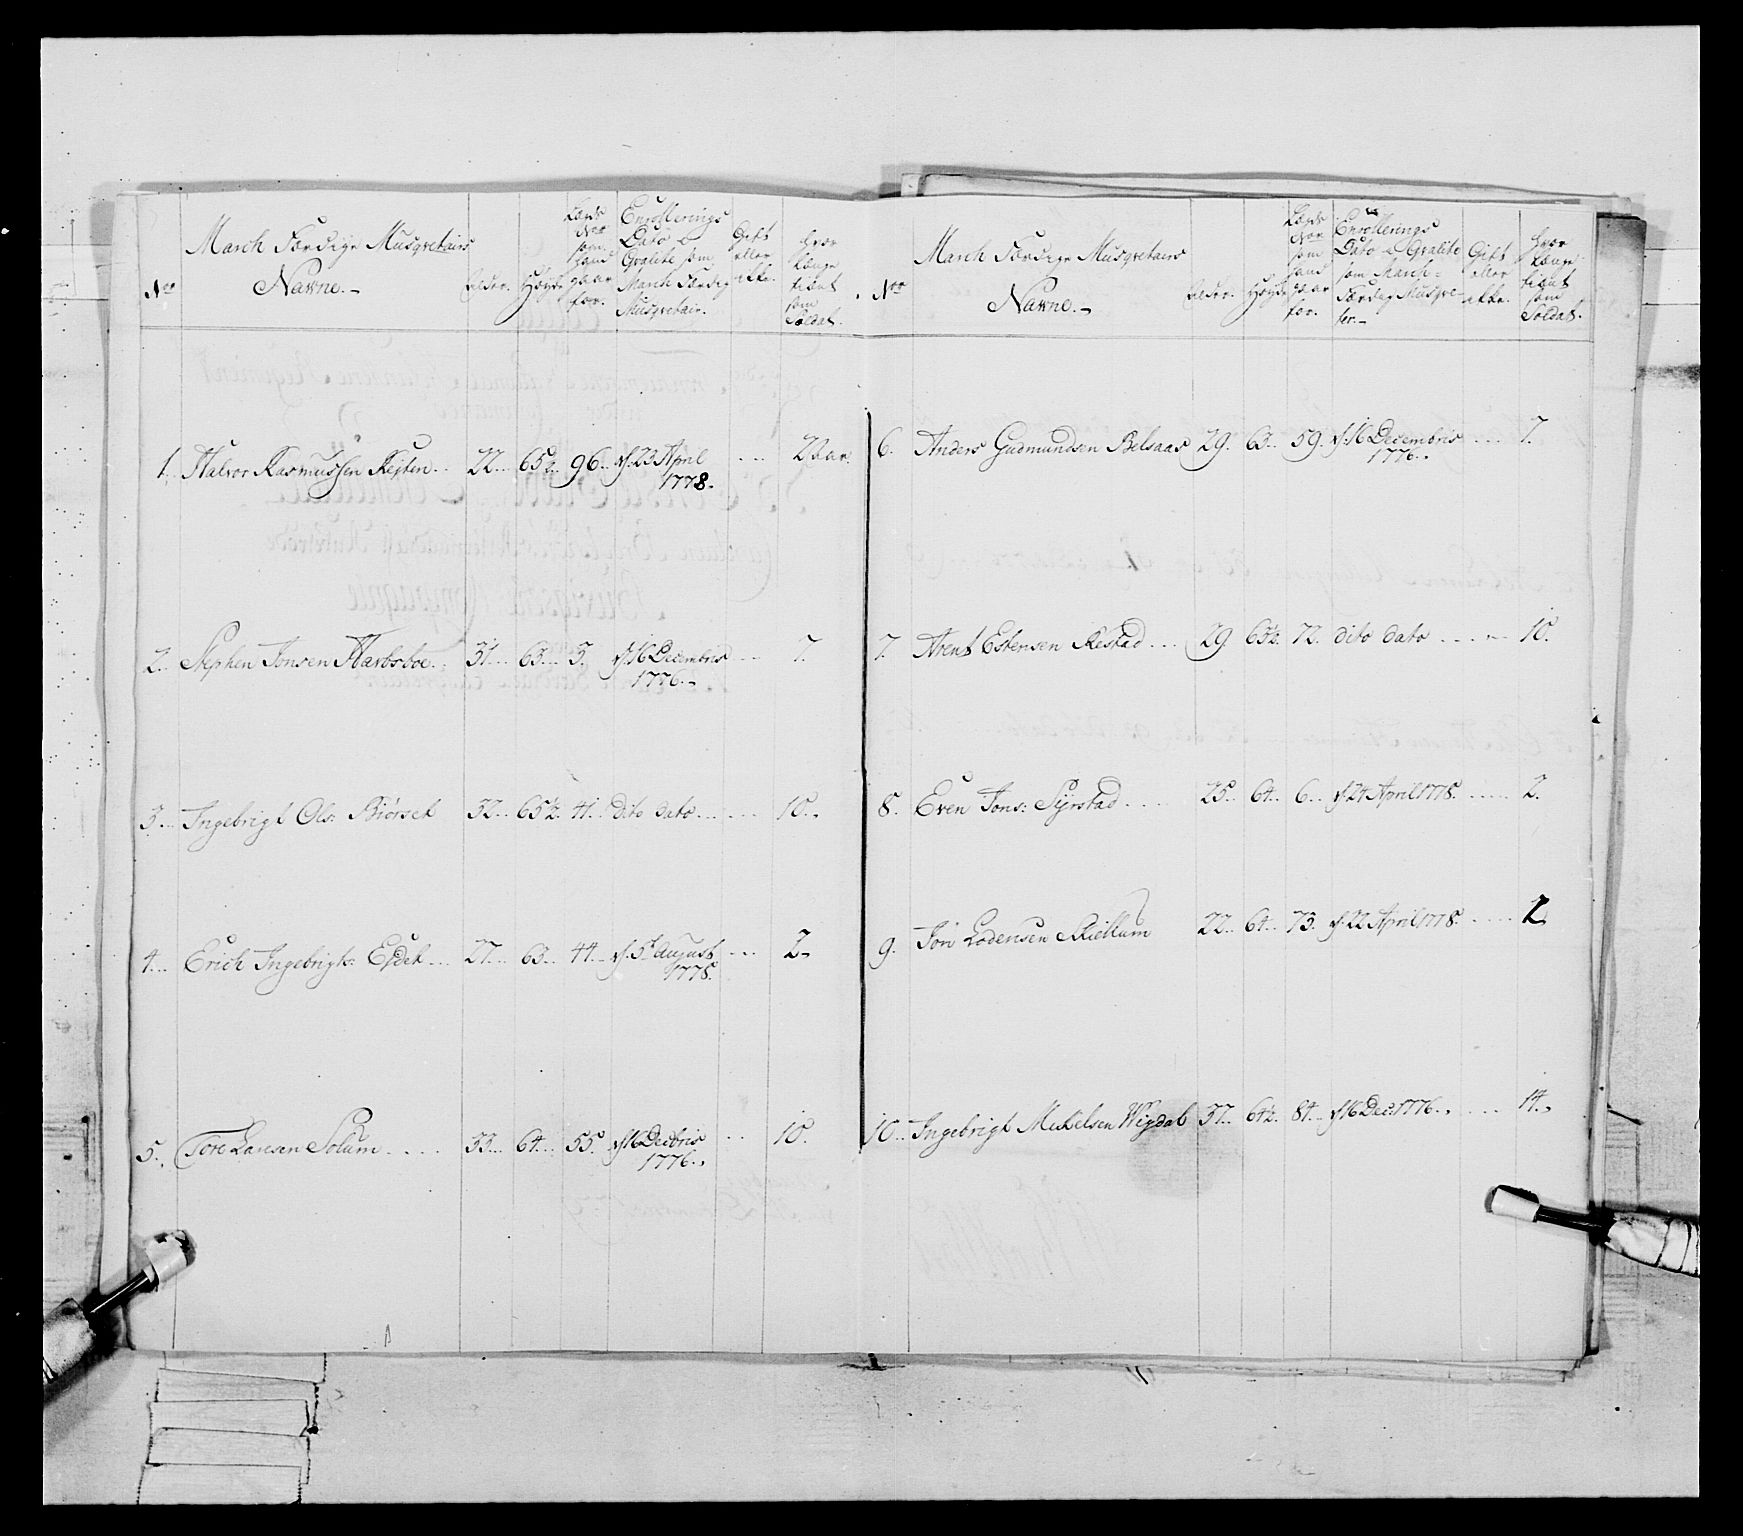 March Færdige Musqvetairs
Navne.
No
Alder.
Høyde
Lægds
Noe
som
hand
gaar
for.
Enrollerings
Dato &
Qvalite som
March Færdig
Musqvetair.
Gift
eller
ikke.
Hvor
længe
tient
som
Soldat.
1. Halvor Rasmussen Rejten .. 22 ... 65½ .. 96 .. d. 23 April .... 2 aar.
1778.
2. Stephen Jonsen Harbsboe .. 31 ... 63 ... 5. d. 16 Decembris .... 7.
1776.
3... Ingebrigt Ols: Biørset 32 .. 65½. 41 .. dito dato ...... 10.
4... Erich Ingebrigts: Epdet ... 27 ... 63 ... 44 .. d. 5t August .... 2
1778.
5. Tore Larsen Solum ..... 33 ... 64 ... 55. d. 16 Decbris .. 10.
1776.
March Færdige Musqvetairs
Navne.
No
Alder.
Høyde
Lægds
Noe
som
hand
gaar
for.
Enrollerings
Dato & Qvalite
som March-
Færdig Musqve-
ter.
Gift
eller
ikke.
Hvor
længe
tient
som
Soldat.
6. Anders Gudmundsen Belsaas 29. 63 .. 59. d. 16 Decembris .... 7.
1776.
7. Arent Estensen Restad .... 29. 65½. 72. dito dato ..... 10.
8. Even Jons: Syrstad ..... 25 .. 64 .. 6 .. d. 24 April 1778. ..... 2.
9. Jon Lodensen Kiellum 22 ... 64 .. 73. d. 22 April 1778. ..... 2
10 .. Ingebrigt Mikelsen Wigdal 37 .. 64½. 84 .. d. 16 Dec: 1776. ..... 14.